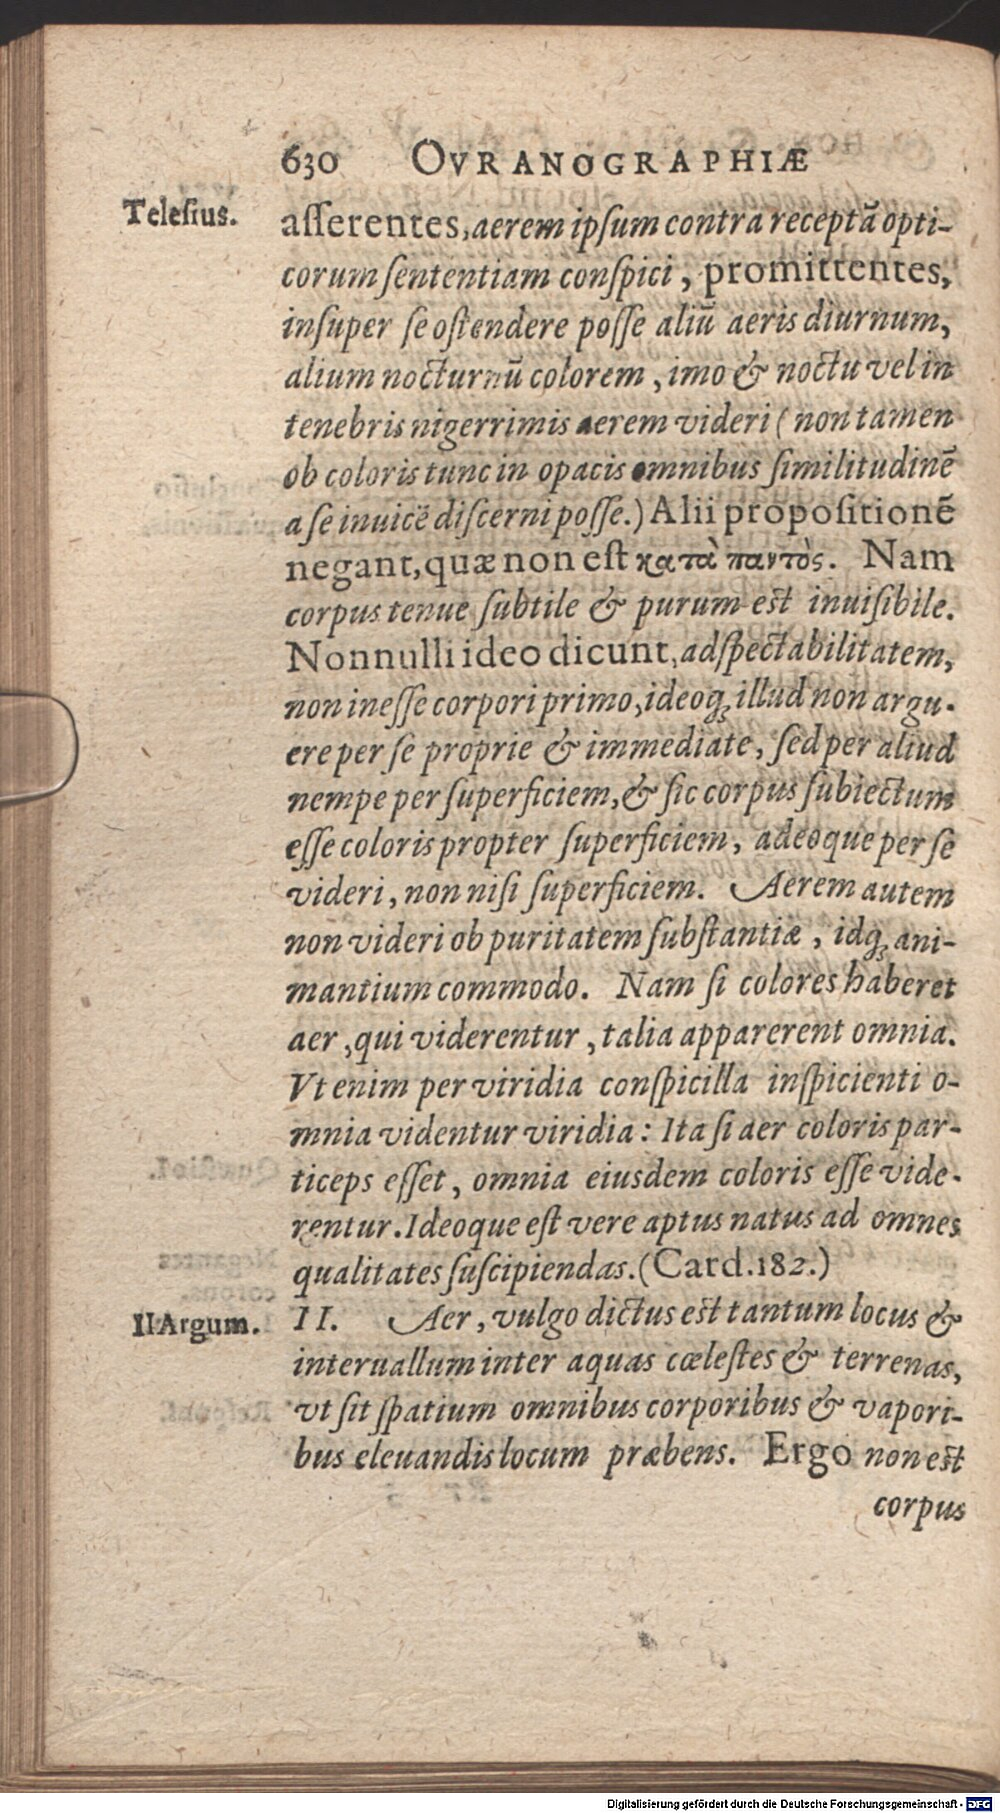 630 OVRANOGRAPHIÆ
Telesius.
aſſerentes, aerem ipſum contra receptā opti-
corum ſententiam conſpici, promittentes,
inſuper ſe oſtendere poſſe aliū aeris diurnum,
alium nocturnū colorem, imo & noctu vel in
tenebris nigerrimis aerem videri (non tamen
ob coloris tunc in opacis omnibus ſimilitudinē
a ſe inuicē diſcerni poſſe.) Alii propoſitionē
negant, quæ non eſt κατὰ παντὸς. Nam
corpus tenue ſubtile & purum est inuiſibile.
Nonnulli ideo dicunt, adſpectabilitatem,
non ineſſe corpori primo, ideoq́ʒ illud non argu-
ere per ſe proprie & immediate, ſed per aliud
nempe per ſuperficiem, & ſic corpus ſubiectum
eſſe coloris propter ſuperficiem, adeoque per ſe
videri, non niſi ſuperficiem. Aerem autem
non videri ob puritatem ſubſtantiæ, idq́ʒ ani-
mantium commodo. Nam ſi colores haberet
aer, qui viderentur, talia apparerent omnia.
Vt enim per viridia conſpicilla inſpicienti o-
mnia videntur viridia: Ita ſi aer coloris par-
ticeps eſſet, omnia eiusdem coloris eſſe vide-
rentur. Ideoque eſt vere aptus natus ad omnes
qualitates ſuſcipiendas. (Card. 182.)
II Argum.
II. Aer, vulgo dictus est tantum locus &
interuallum inter aquas cœleſtes & terrenas,
vt ſit ſpatium omnibus corporibus & vapori-
bus eleuandis locum præbens. Ergo non est
corpus
Digitalisierung gefördert durch die Deutsche Forschungsgemeinschaft - DFG